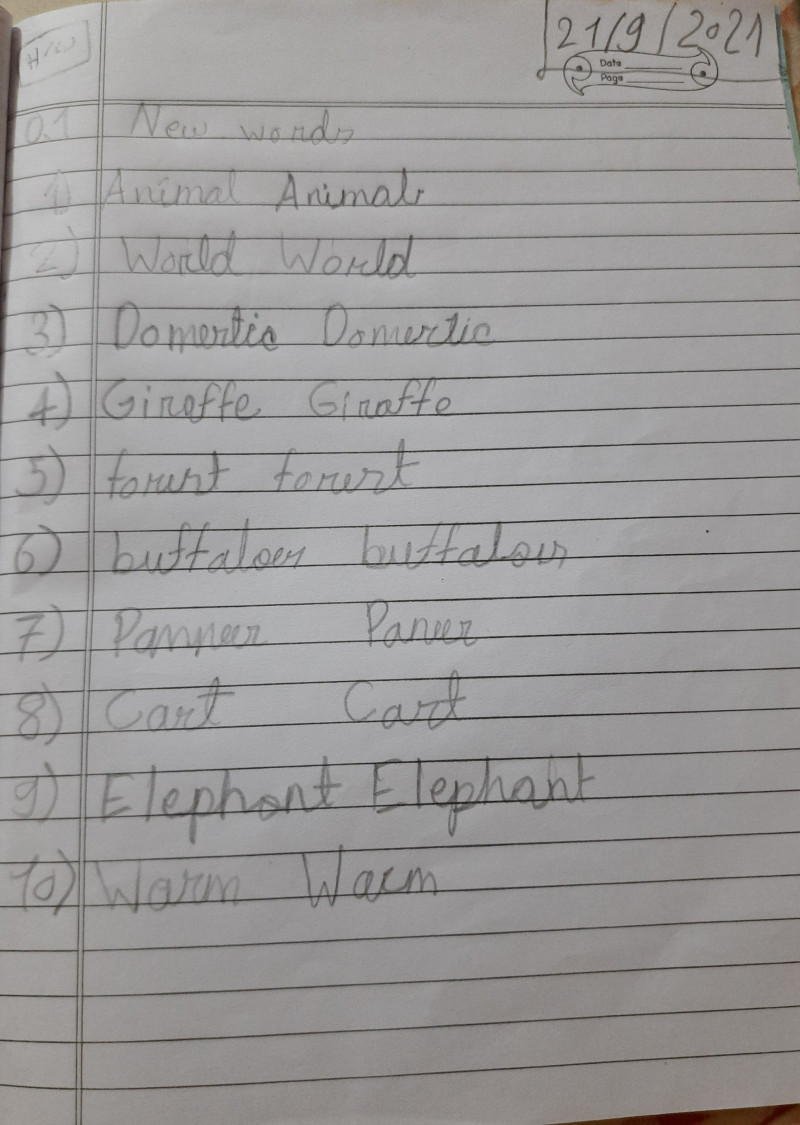 21/9/2021
H/W
Date
Page
Q.1 New words
1) Animal Animals
2) World World
3) Domestic Domestic
4) Giraffe Giraffe
5) forest forest
6) buffaloes buffaloes
7) Panneer Paneer
8) Cart Cart
9) Elephant Elephant
10) Warm Warm